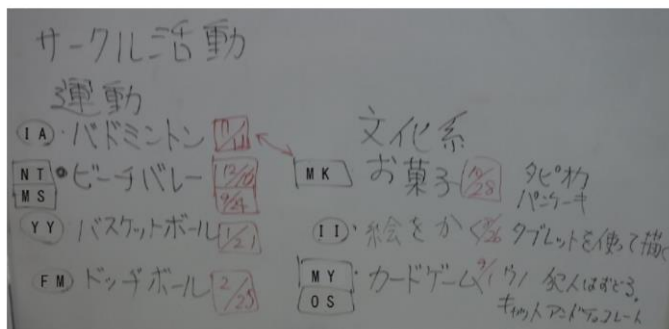 サークル活動
運動
IA・バドミントン 11/11
NT MS ・ビーチバレー 12/16 9/24
YY バスケットボール 1/21
FM ドッヂボール 2/25
文化系
MK お菓子 10/28 タピオカ パンケーキ
II・絵をかく /26 タブレットを使って描く
MY OS ・カードゲーム 9/ ウノ 犯人はおどる。
キャットアンドチョコレート